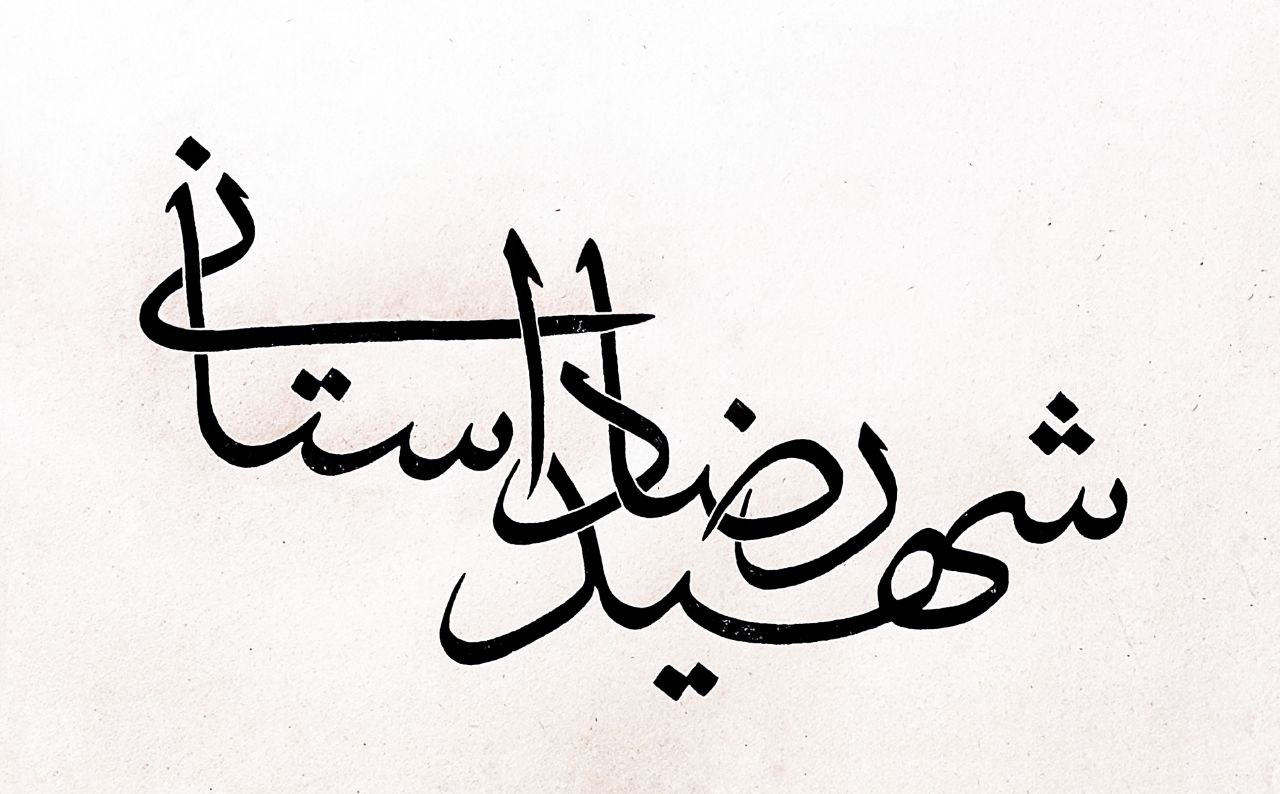 شهید رضا داستانی